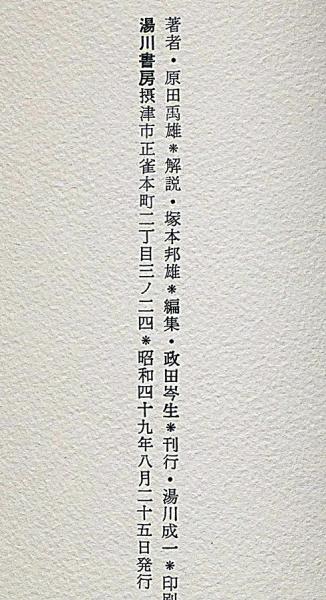 著者・原田禹雄＊解説・塚本邦雄＊編集・政田岑生＊刊行・湯川成一＊印刷
湯川書房摂津市正雀本町二丁目三ノ二四＊昭和四十九年八月二十五日発行